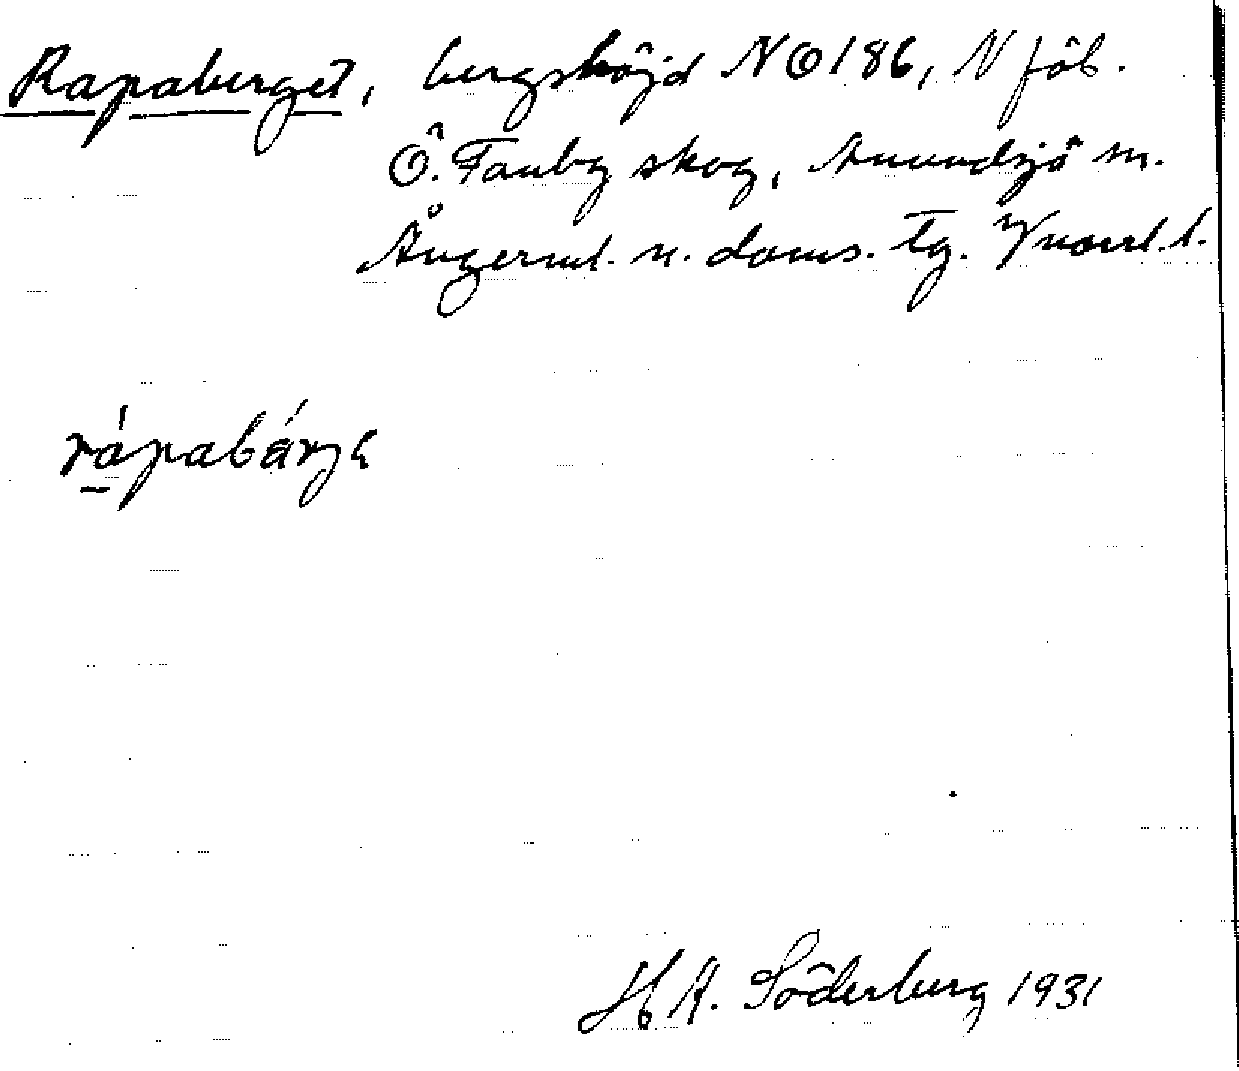 Rapaberget, bergshöjd NO 186, N fåb.
Ö. Tanbg skog, Anundsjö sn.
Ångerml. n. doms. tg. Vnorrl. l.
rápabárjɛ
H. A. Söderberg 1931